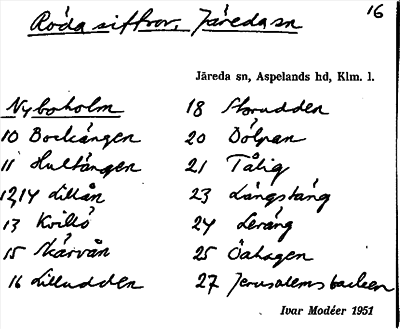 16
Röda siffror, Järeda sn
Järeda sn, Aspelands hd, Klm. l.
Nyboholm
10 Bockängen
11 Hultängen
12,14 Lillån
13 Kvillö
15 Närvån
16 Lilludden
18 Storudden
20 Dölpan
21 Tålig
23 Långstäng
24 Leräng
25 Öahagen
27 Jerusalemsbacken
Ivar Modéer 1951